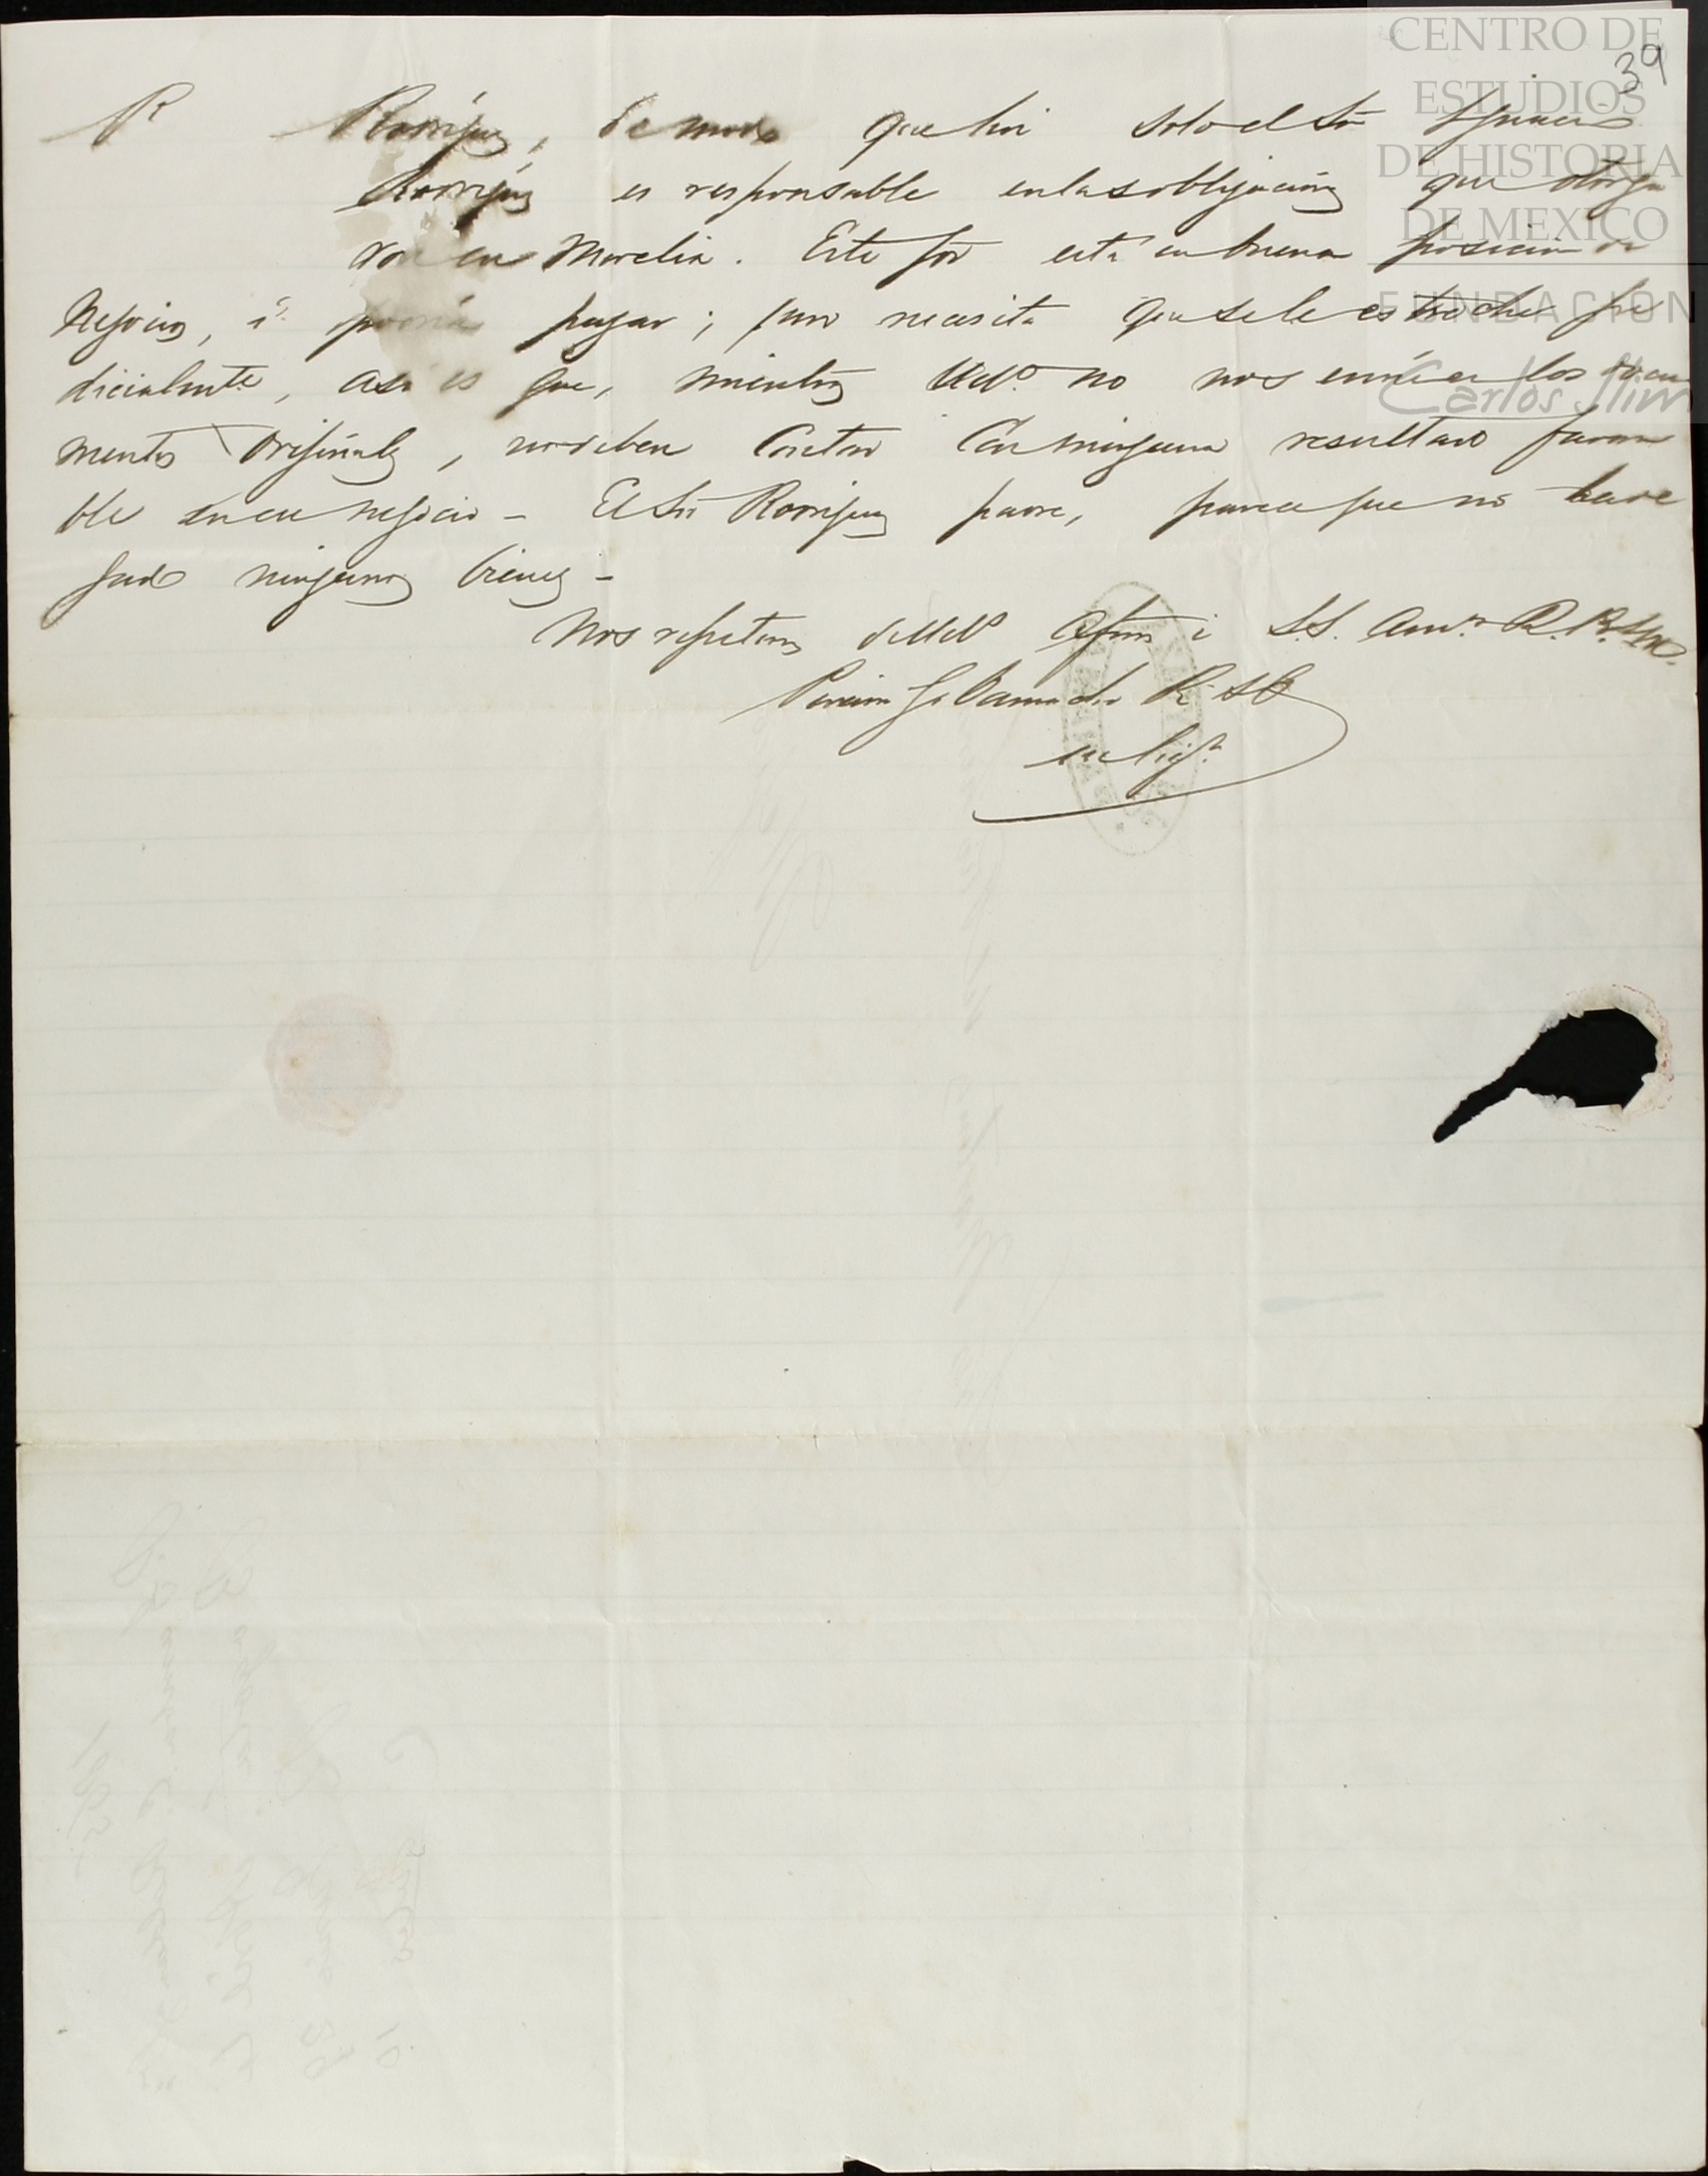 CENTRO DE
ESTUDIOS
DE HISTORIA
DE MEXICO
FUNDACION
Carlos Slim
39
R Rodriguez, de modo que hoi solo el Sor Ignacio
Rodriguez es responsable en las obligaciones que otorga
ron en Morelia. Este Sor está en buena posicion de
Negocios, i podrá pagar; pero necesita que se le estreche ju
dicialmte, asi es que, mientras Uds. no nos envien los docu
mentos originales, no deben contar con ninguno resultado favora
ble en ese negocio - El Sor Rodriguez padre, parece que no ha de
jado ningunos bienes -
Nos repetimos de Uds afmos i S.S. Amos Q. B. S. M.
Camacho
en liqn.